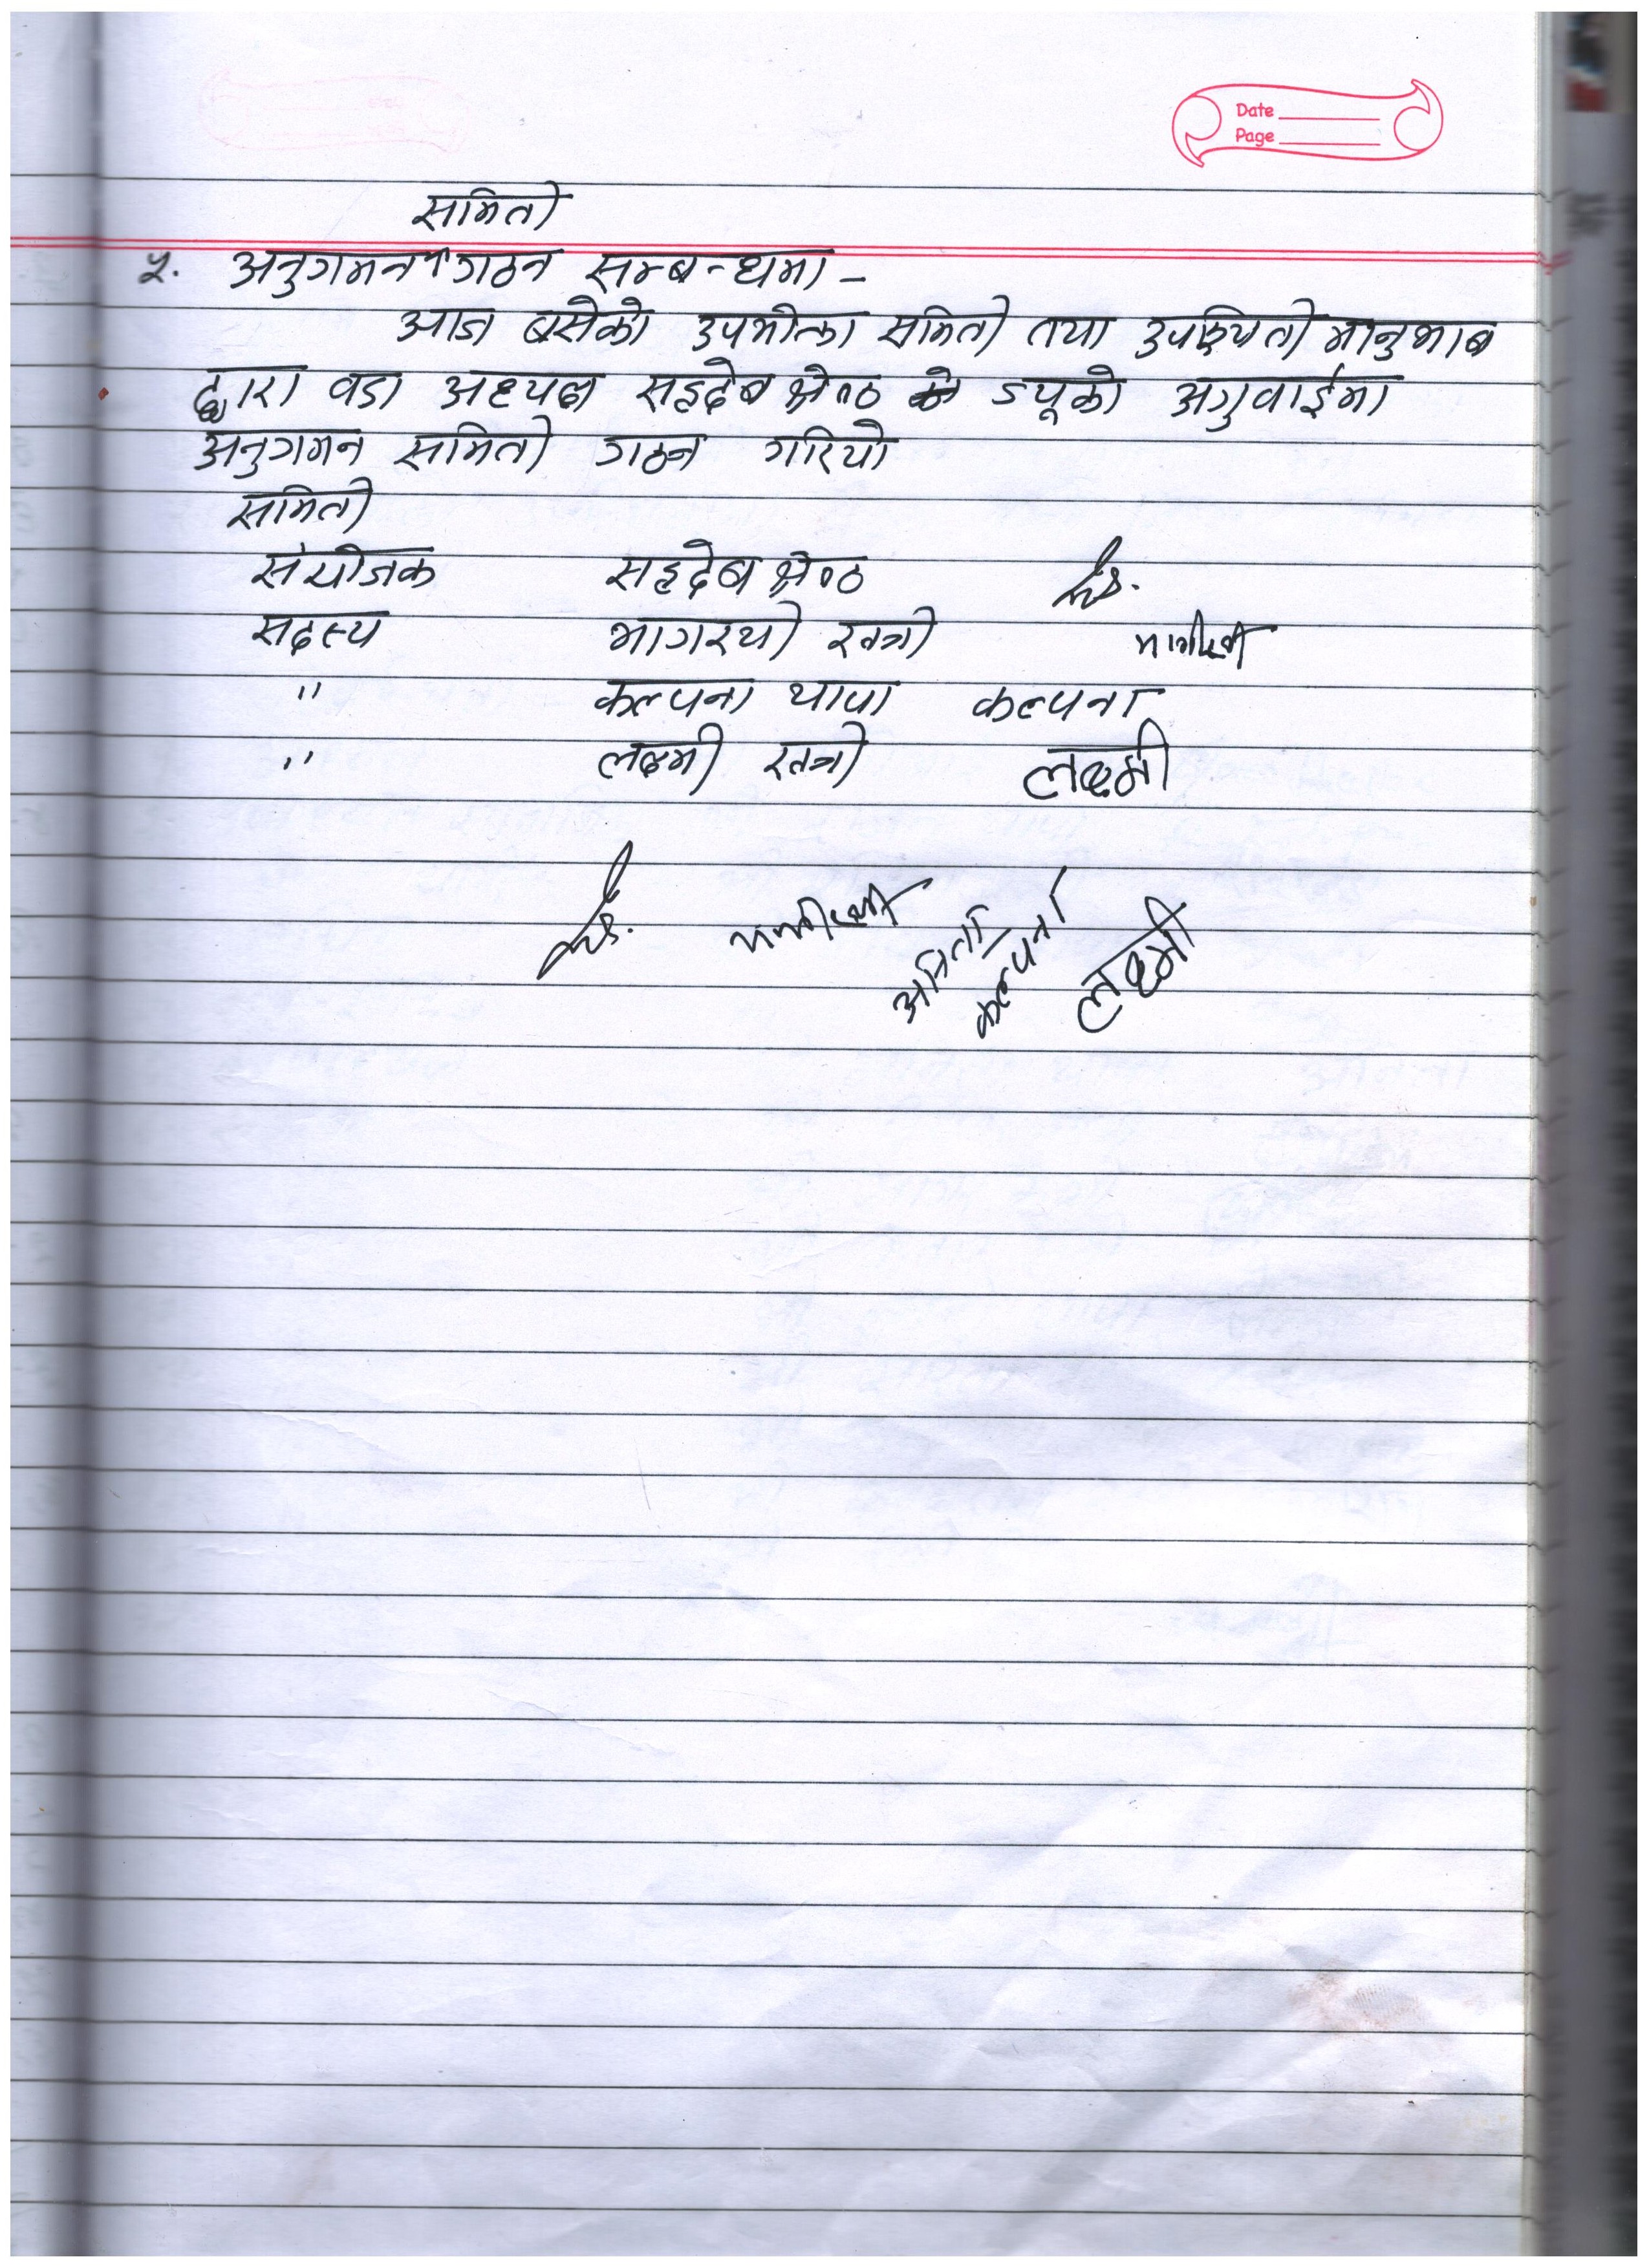 Date
Page
समिती
५. अनुगमन गठन सम्बन्धमा -
आज बसेको उपभोक्ता समिती तथा उपस्थिती मानुभाब
द्वारा वडा अध्यक्ष सहदेब श्रेष्ठ ज्यूको अगुवाईमा
अनुगमन समिती गठन गरियो
समिती
संयोजक सहदेब श्रेष्ठ
सदस्य भागरथी खत्री
" कल्पना थापा कल्पना
" लक्ष्मी खत्री लक्ष्मी
कल्पना लक्ष्मी